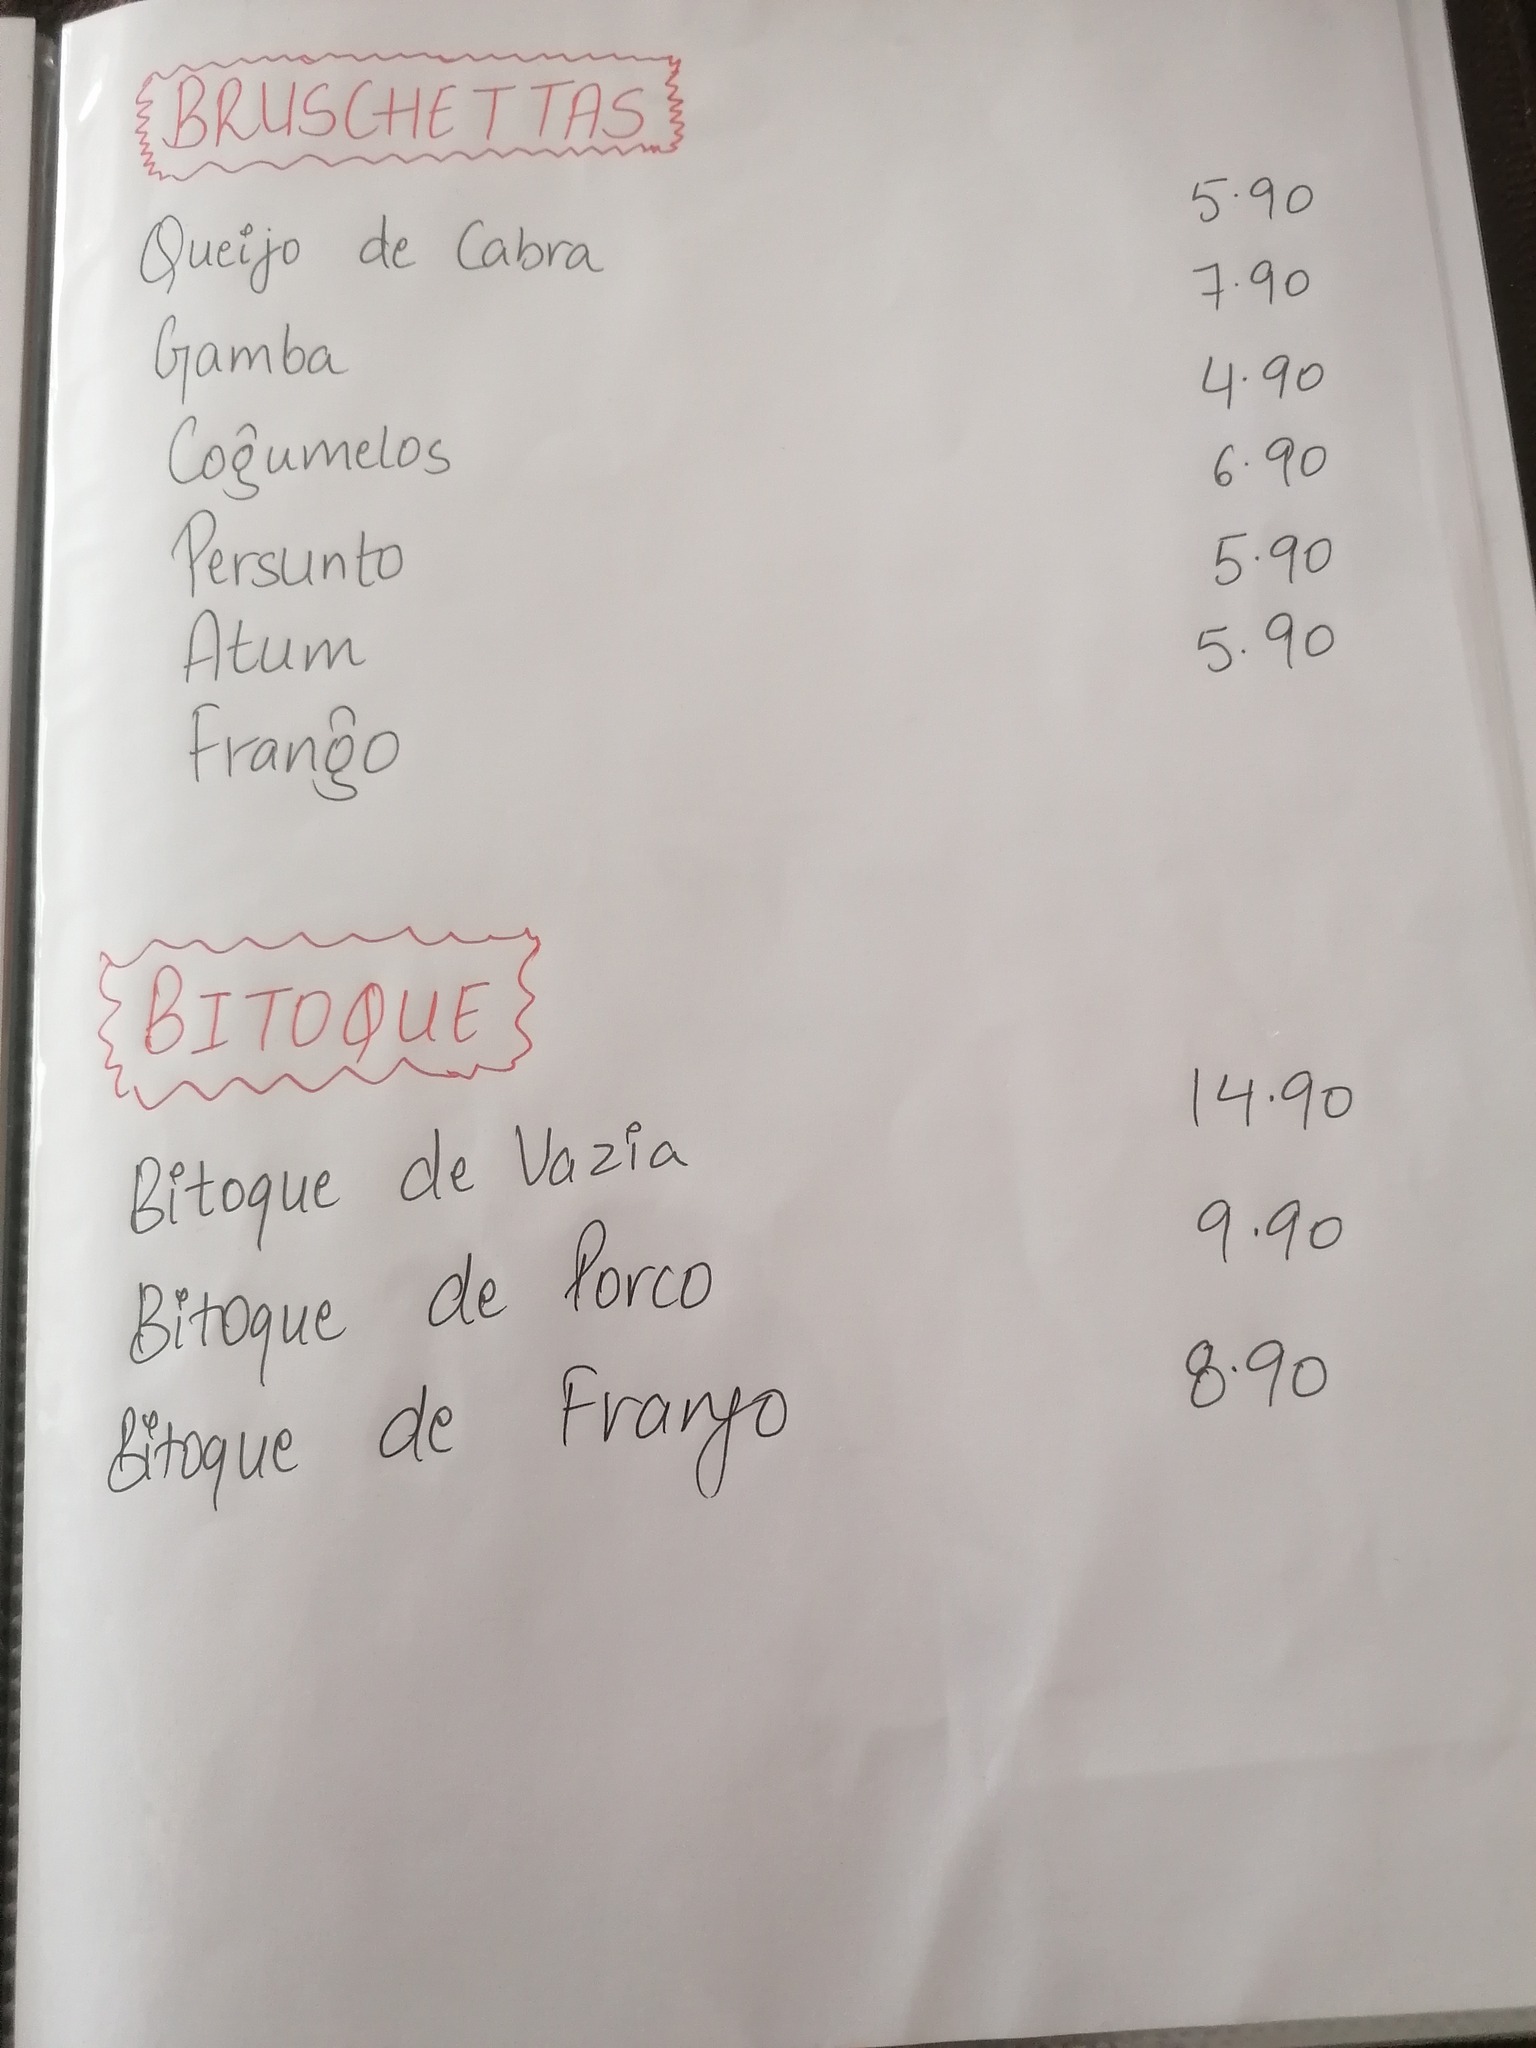 BRUSCHETTAS
Queijo de Cabra 5.90
Gamba 7.90
Coĝumelos 4.90
Persunto 6.90
Atum 5.90
Franĝo 5.90
BITOQUE
Bitoque de Vazia 14.90
Bitoque de Porco 9.90
Bitoque de Frango 8.90